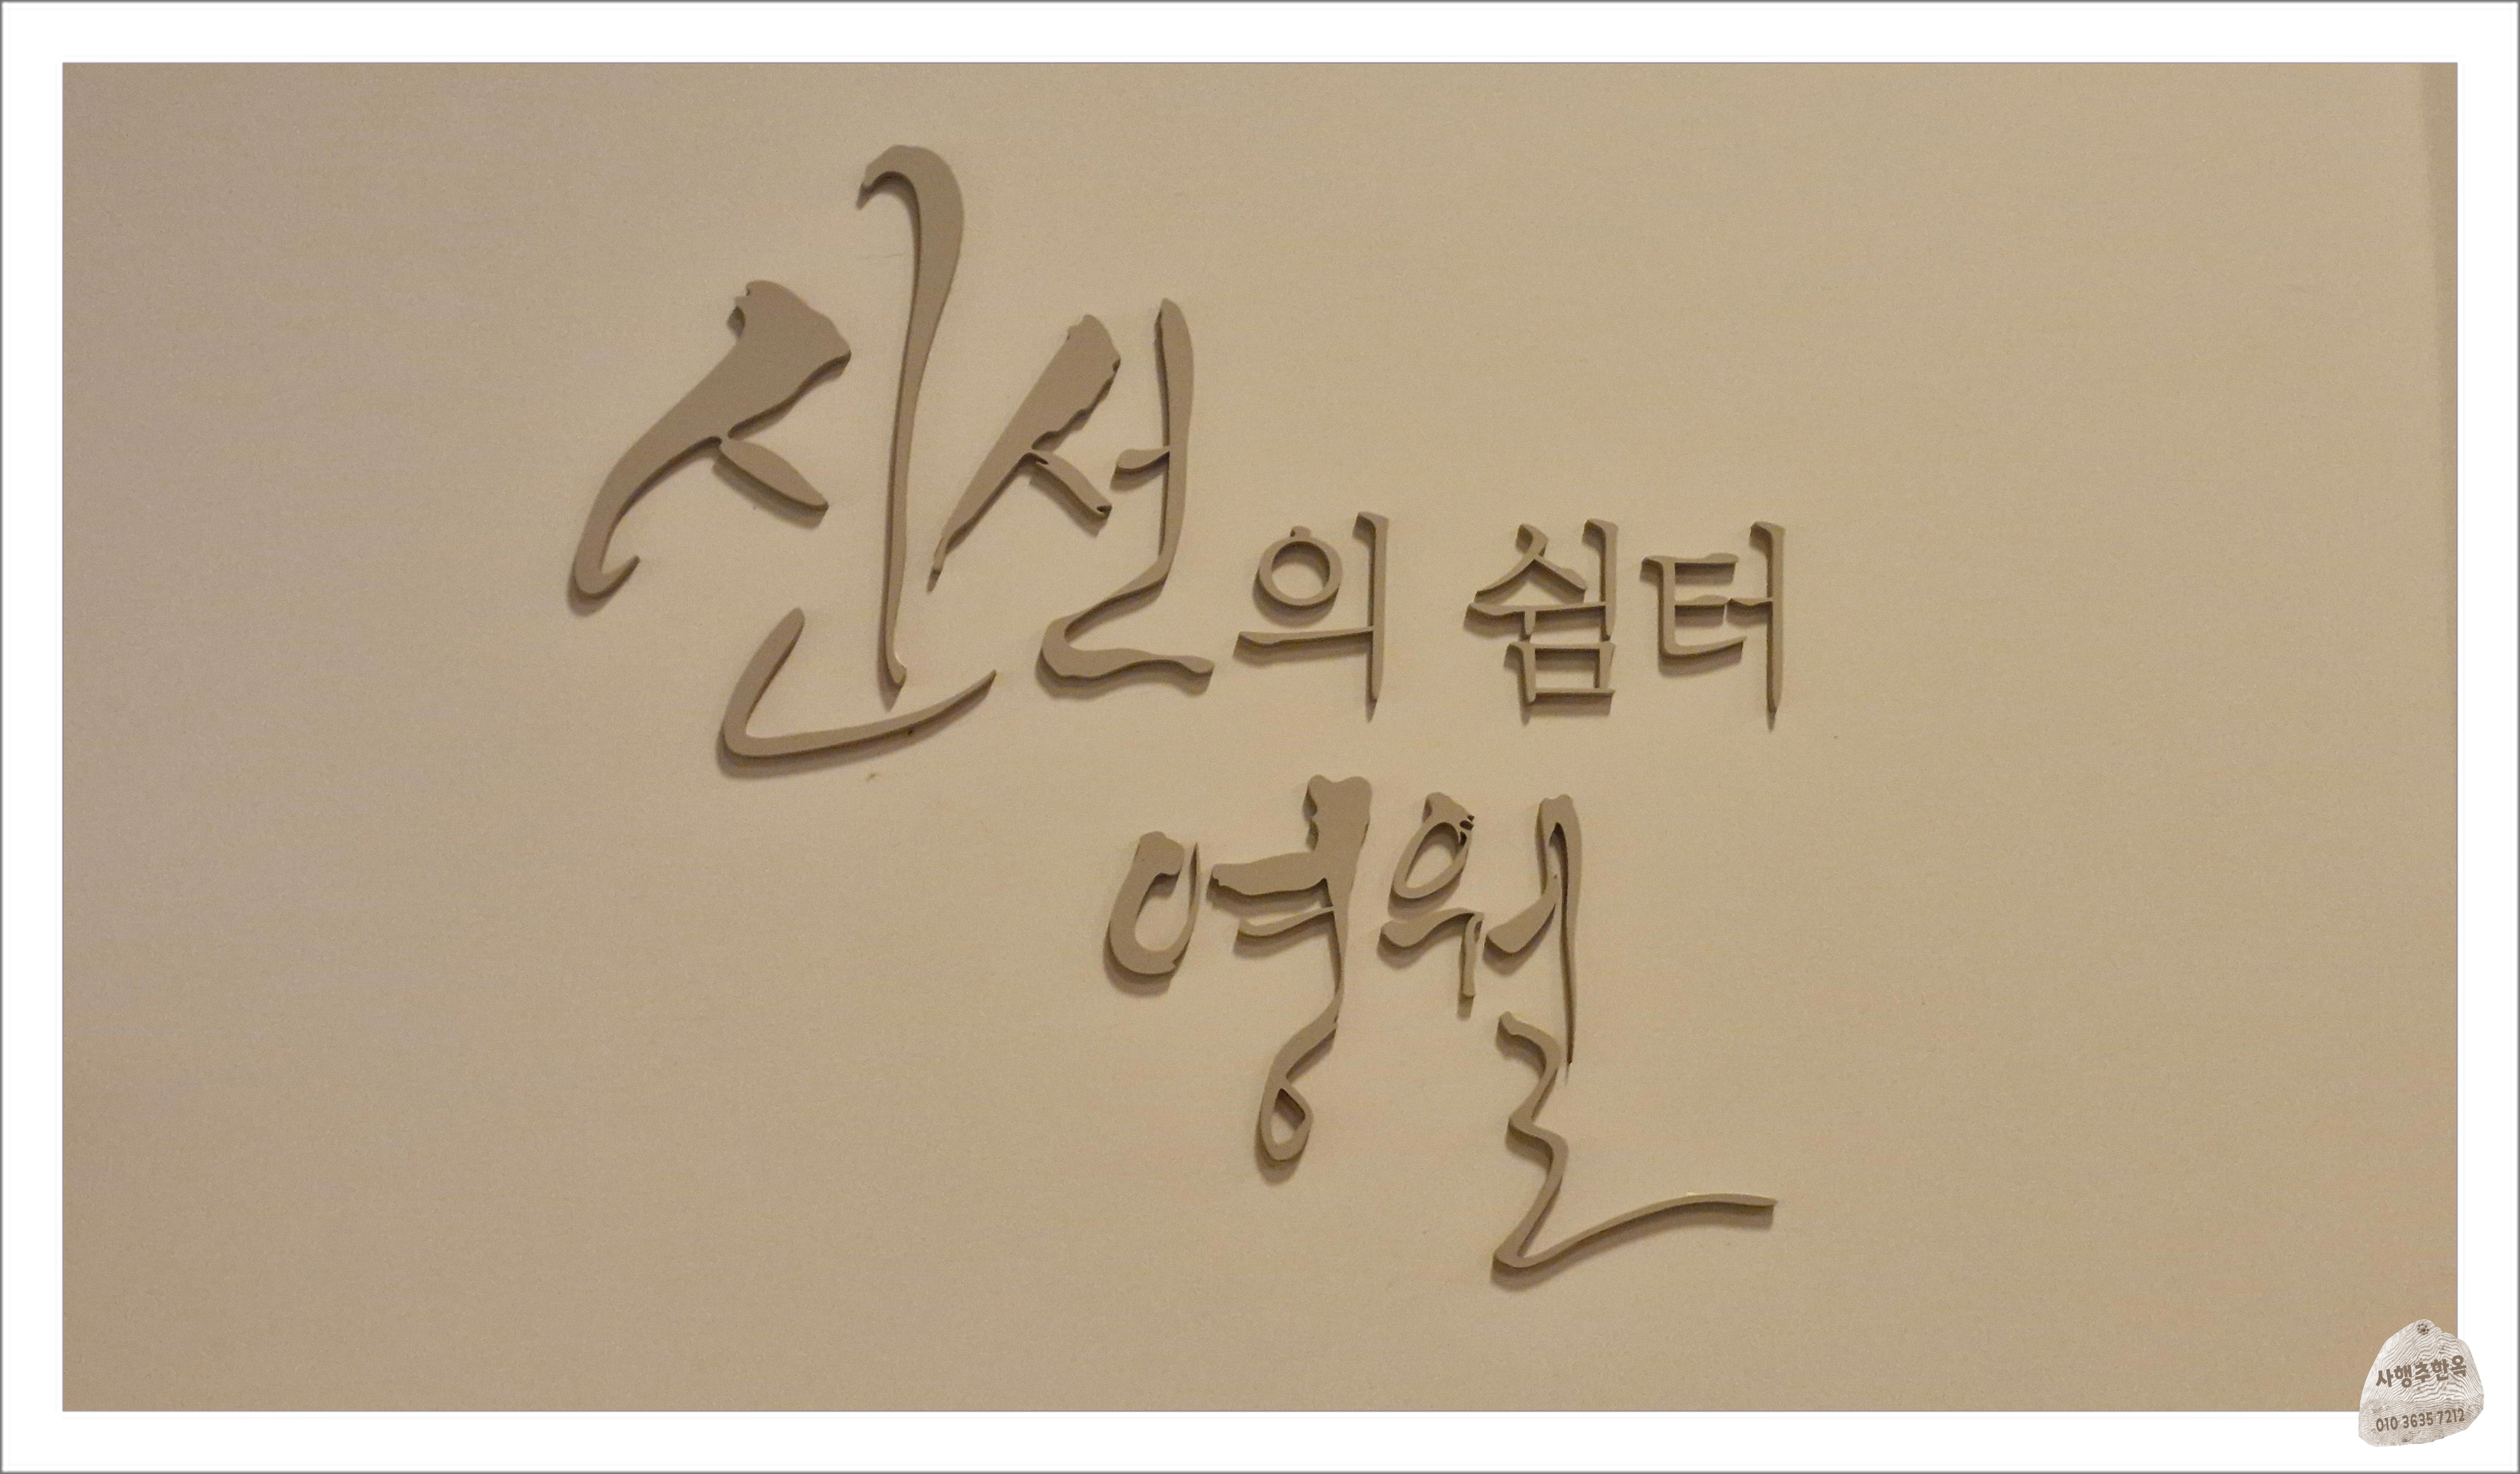 신선의 쉼터
영월
사행추한옥
010 3635 7212